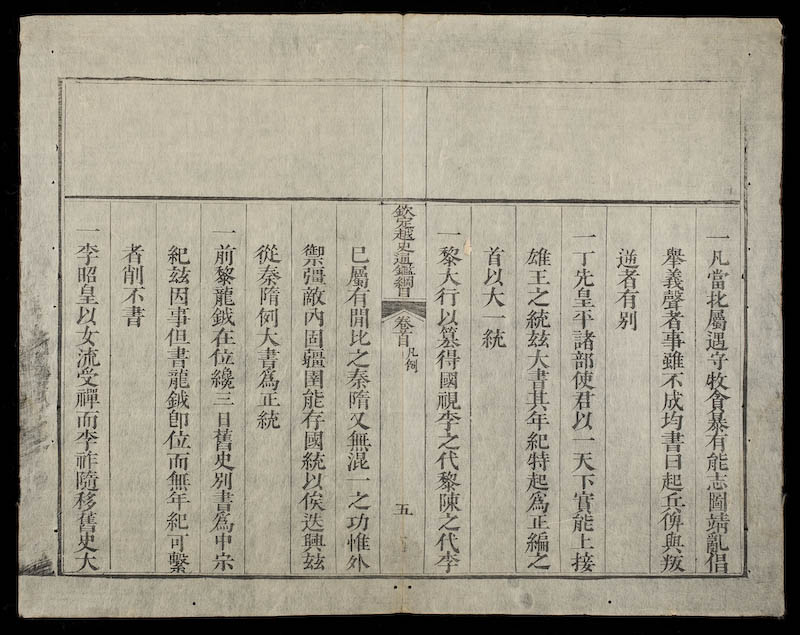 一凡當北屬遇守牧貪暴有能志圖靖亂倡
舉義聲者事雖不成均書曰起兵俾與叛
逆者有别
一丁先皇平諸部使君以一天下實能上接
雄王之統玆大書其年紀特起爲正編之
首以大一統
一黎大行以篡得國視李之代黎陳之代李
欽定越史通鑑綱目 卷首 凡例 五
已屬有間比之秦隋又無混一之功惟外
禦彊敵內固疆圉能存國統以俟迭興玆
從秦隋例大書爲正統
一前黎龍鉞在位纔三日舊史别書爲中宗
紀玆因事但書龍鉞卽位而無年紀可繫
者削不書
一李昭皇以女流受禪而李祚隨移舊史大